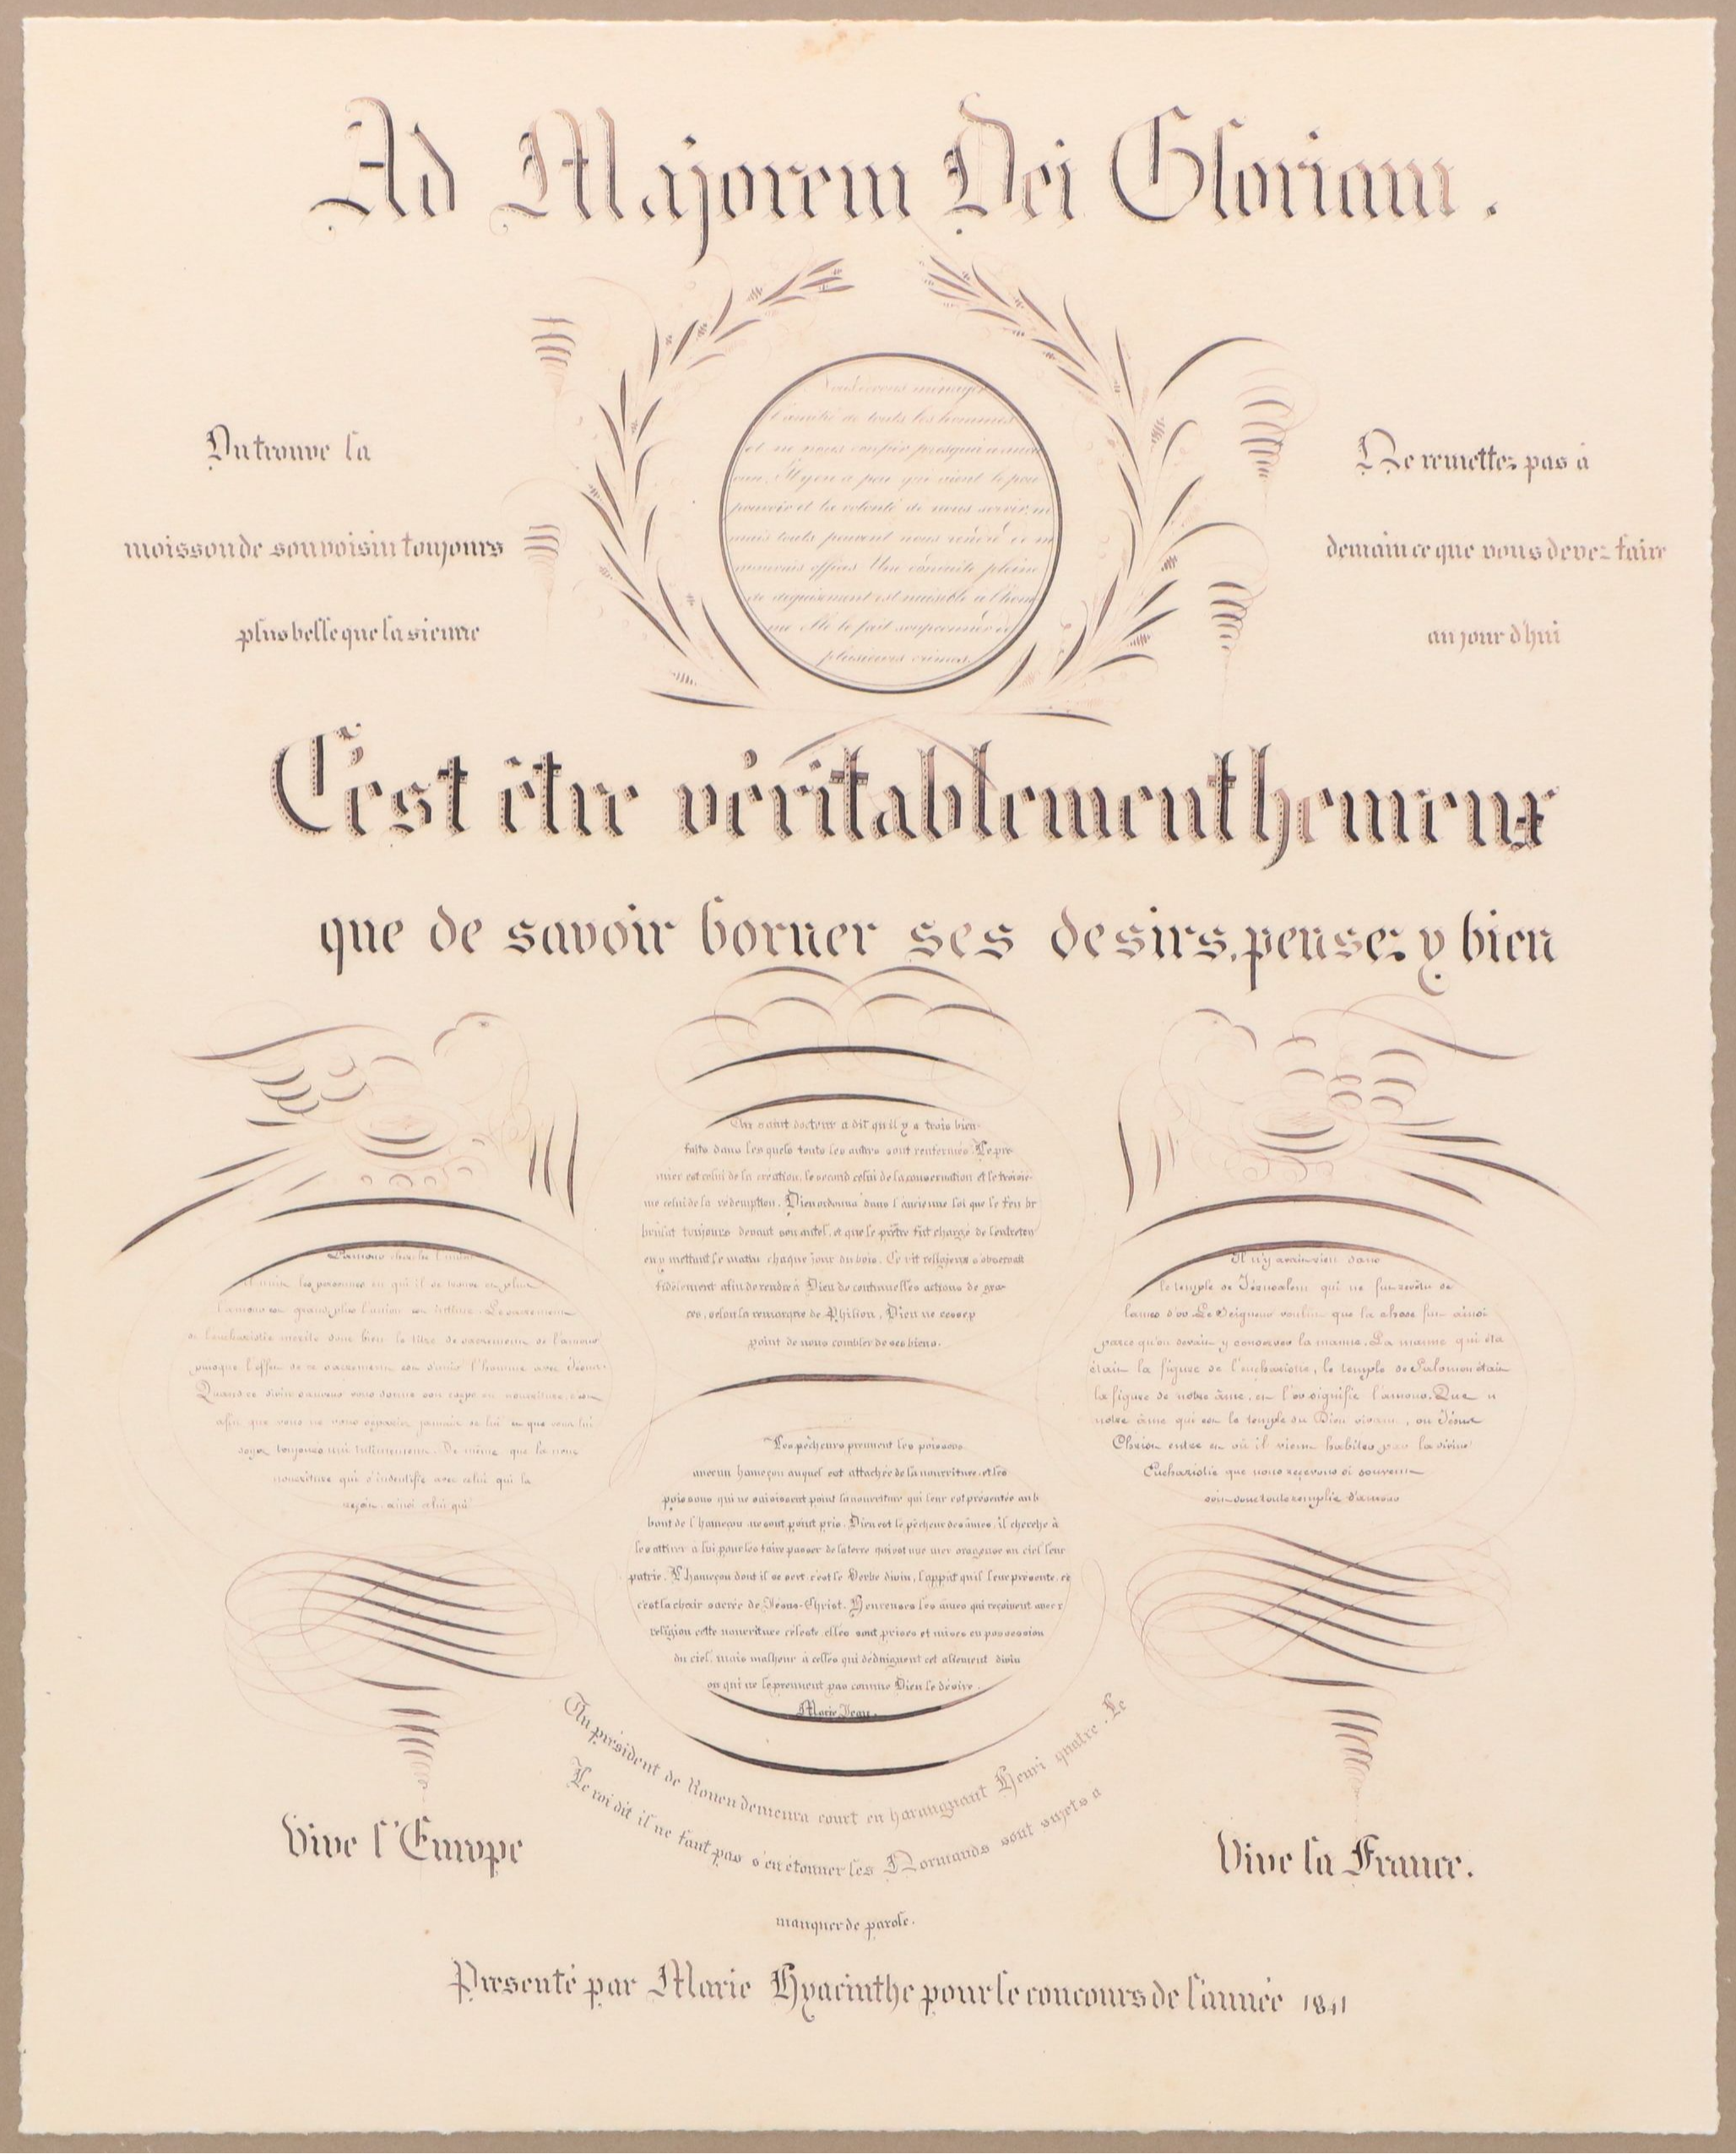 Ad Majorem Dei Gloriam.
On trouve la
moisson de son voisin toujours
plus belle que la sienne
Nous devons ménager
l'amitié de touts les hommes
et ne nous confier presqu'à aucun
Il y en a peu qui aient le pou
pouvoir et la volonté de nous servir, m
mais touts peuvent nous rendre de m
mauvais offices Une conduite pleine
de déguisement est nuisible à l'hom
me Ele le fait soupconner de
plusieurs crimes.
Ne remettez pas à
demain ce que vous devez faire
aujourd'hui
C'est être véritablement heureux
que de savoir borner ses desirs, pensez y bien
Un saint docteur a dit qu'il y a trois bien-
faits dans les quels touts les autres sont renfermés. Le pre-
mier est celui de la création, le second celui de la conservation et le troisiè-
me celui de la rédemption. Dieu ordonna dans l'ancienne loi que le feu br
brûlât toujours devant son autel, et que le prêtre fut chargé de l'entreten
en y mettant le matin chaque jour du bois. Ce rit religieux s'observait
fidèlement afin de rendre à Dieu de continuelles actions de grâ-
ces, selon la remarque de Philion, Dieu ne cesse
point de nous combler de ses biens.
L'amour cherche l'union
les personnes en qui il se trouve et plus
l'amour est grand plus l'union est intime. Le sacrement
de l'eucharistie mérite donc bien le titre de sacrement de l'amour
puisque l'effet de ce sacrement est d'unir l'homme avec Jésus
Quand ce divin sauveur vous donne son corps en nourriture, c'est
afin que vous ne vous séparier jamais de lui et que vous lui
soyez toujours uni intimement. De même que la nour
nourriture qui s'indentifie avec celui qui la
reçoit, ainsi celui qui
Il n'y avait rien dans
le temple de Jérusalem qui ne fut revêtu de
lames d'or Le Seigneur voulut que la chose fut ainsi
parce qu'on devait y conserver la manne. La manne qui éta
était la figure de l'eucharistie, le temple de Salomon était
la figure de notre âme, et l'or signifie l'amour. Que n
notre âme qui est le temple du Dieu vivant, où Jésus
Christ entre et où il vient habiter par la divine
Eucharistie que nous recevons si souvent
soit donc toute remplie d'amour
Les pêcheurs prennent les poissons
avec un hameçon auquel est attachée de la nourriture, et les
poissons qui ne saisissent point la nourriture qui leur est présentée au b
bout de l'hameçon ne sont point pris. Dieu est le pêcheur des âmes, il cherche à
les attirer à lui pour les faire passer de la terre qui est une mer orageuse au ciel leur
patrie. L'hameçon dont il se sert, c'est le Verbe divin, l'appât qu'il leur présente, ce
c'est la chair sacrée de Jésus-Christ. Heureuses les âmes qui reçoivent avec r
religion cette nourriture céleste elles sont prises et mises en possession
du ciel, mais malheur à celles qui dédaignent cet aliement divin
ou qui ne le prennent pas comme Dieu le désire.
Marie Jean.
Un président de Rouen demeura court en haranguant Henri quatre. Le
Le roi dit il ne faut pas s'en étonner les Normands sont sujets a
manquer de parole.
Vive l'Europe
Vive la France.
Presenté par Marie Hyacinthe pour le concours de l'année 1841